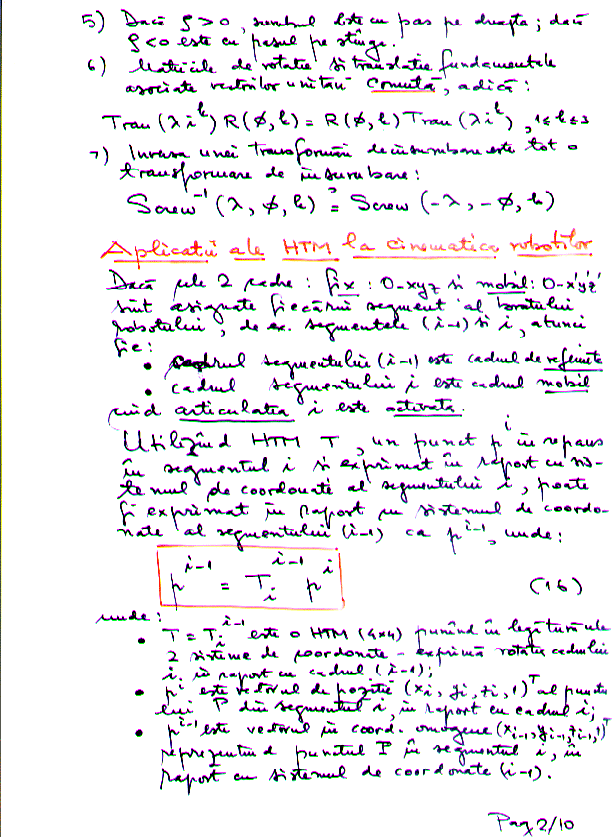 5) Dacă ρ>0, șurubul este cu pas pe dreapta; dacă
ρ<0 este cu pasul pe stînga.
6) Matricile de rotație și translație fundamentale
asociate vectorilor unitari comută, adică:
Tran (λi^k) R(φ,k) = R(φ,k) Tran (λi^k), 1≤k≤3
7) Inversa unei transformări de înșurubare este tot o
transformare de înșurubare:
Screw^-1 (λ, φ, k) = Screw (-λ, -φ, k)
Aplicații ale HTM la cinematica roboților
Dacă cele 2 cadre: fix: O-xyz și mobil: O-x'y'z'
sînt asignate fiecărui segment al brațului
robotului, de ex. segmentele (i-1) și i, atunci
fie:
• cadrul segmentului (i-1) este cadrul de referință
• cadrul segmentului i este cadrul mobil
cînd articulația i este activată.
Utilizînd HTM T, un punct p^i în repaus
în segmentul i și exprimat în raport cu sis-
temul de coordonate al segmentului i, poate
fi exprimat în raport cu sistemul de coordo-
nate al segmentului (i-1) ca p^i-1, unde:
p^i-1 = T_i^i-1 p^i (16)
unde:
• T = T_i^i-1 este o HTM (4x4) punînd în legătură cele
2 sisteme de coordonate - exprimă rotația cadrului
i, în raport cu cadrul (i-1);
• p^i este vectorul de poziție (x_i, y_i, z_i, 1)^T al punctu-
lui P din segmentul i, în raport cu cadrul i;
• p^i-1 este vectorul în coord. omogene (x_i-1, y_i-1, z_i-1, 1)^T
reprezentînd punctul P în segmentul i, în
raport cu sistemul de coordonate (i-1).
Pag 2/10